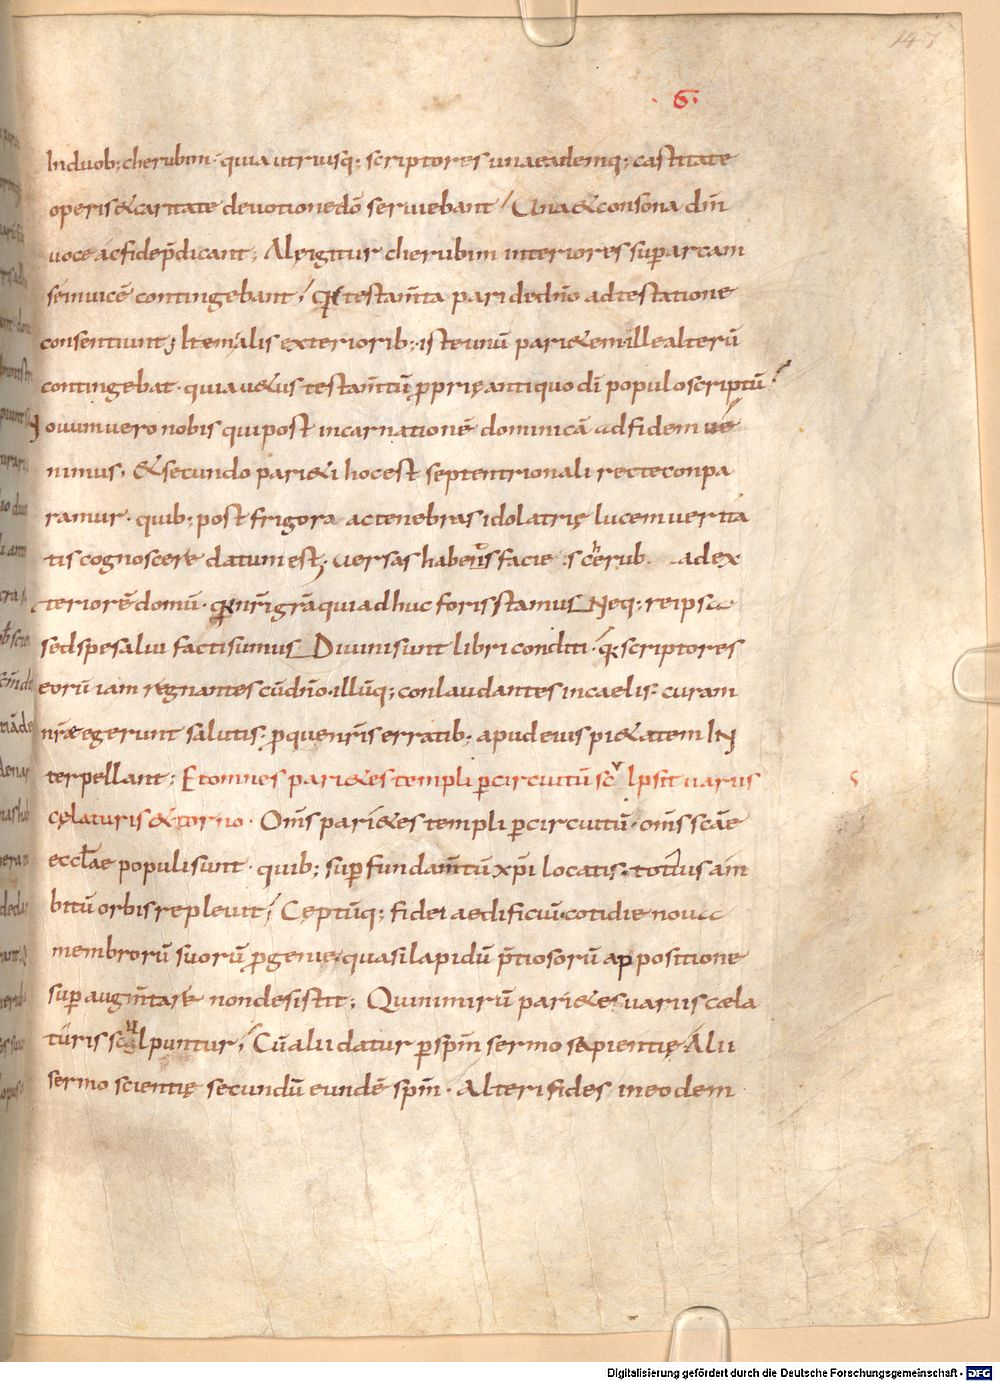 147
·6·
Induob; cherubim· quia utriusq; scriptores unaeademq; castitate
operis & caritate deuotione dō seruiebant / Una & consona diīn
uoce ac fide p̄dicant; Alę igitur cherubim interiores super arcam
se inuicē contingebant / Quia testam̄ta pari de dn̄o adtestatione
consentiunt; Item alis exteriorib; iste unū pari&em ille alterū
contingebat· quia u&us testam̄tū proprię antiquo dī populo scriptū /
Nouum uero nobis qui post incarnationē dominicā ad fidem ue
nimus, & secundo pari&i hoc est septentrionali recte conpa
ramur· quib; post frigora ac tenebras idolatrię lucem uerita
tis cognoscere datum est; uersas habens facies cherub ad ex
teriorē domū· nr̄i gr̄a qui adhuc foris stamus Neq; re ipsa
sed spe salui facti sumus Diuini sunt libri conditi· scriptores
eorū iam regnantes cū dn̄o· illūq; conlaudantes in caelis· curam
nr̄ae egerunt salutis· proque nr̄is erratib; apud eius pi&atem IN
terpellant; Et omnes pari&es templi per circuitū sculpsit uariis
cęlaturis & torno· Om̄s pari&es templi per circuitū· om̄s scāe
eccl̄ae populi sunt· quib; super fundam̄tū xp̄i locatis· totius am
bitū orbis repleuit / Cęptūq; fidei aedificiū· cotidie noua
membrorū suorū progenie· quasi lapidū p̄tiosorū appositione
super augm̄tare non desistit; Qui nimirū pari&es uariis caela
turis sculpuntur / Cū alii datur per sp̄m sermo sapientię Alii
sermo scientię secundū eundē sp̄m· Alteri fides in eodem
S
Digitalisierung gefördert durch die Deutsche Forschungsgemeinschaft - DFG